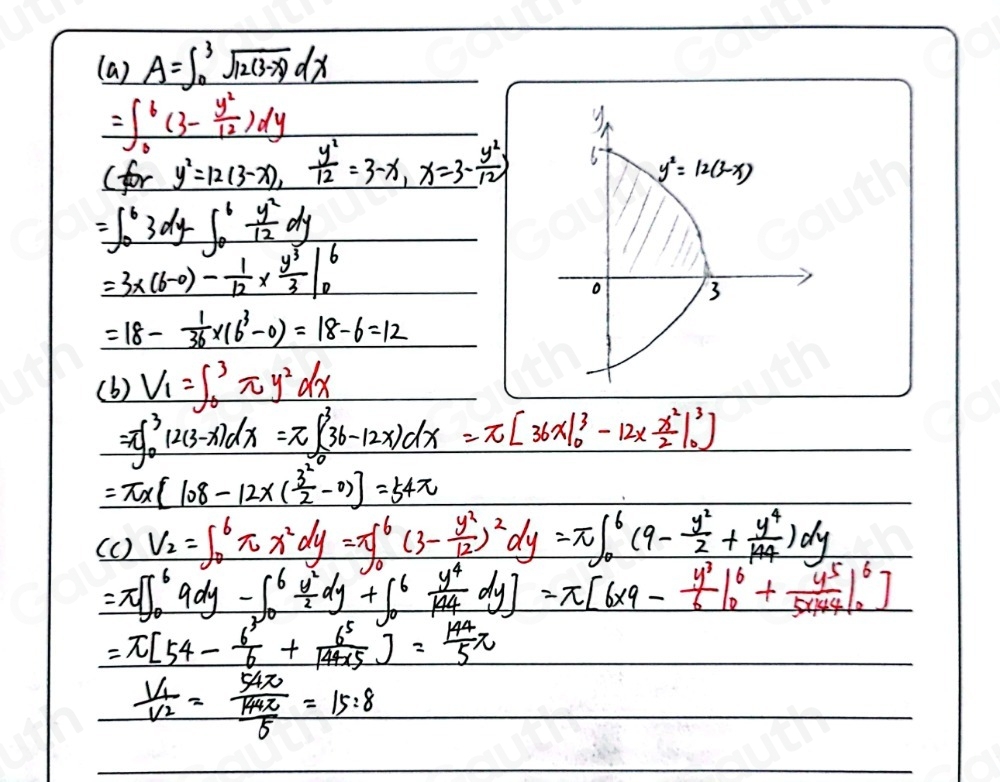 (a) A=∫₀³ √12(3-x) dx
=∫₀⁶ (3- y²/12) dy
(for y²=12(3-x), y²/12 = 3-x, x=3- y²/12)
=∫₀⁶ 3dy - ∫₀⁶ y²/12 dy
=3×(6-0) - 1/12 × y³/3 |₀⁶
=18- 1/36 ×(6³-0) = 18-6=12
(b) V₁ =∫₀³ π y² dx
=π∫₀³ 12(3-x)dx =π∫₀³(36-12x)dx =π[36x|₀³ - 12× x²/2|₀³]
=π×[108-12×(3²/2 -0)] =54π
(c) V₂ =∫₀⁶ π x² dy =π∫₀⁶ (3- y²/12)² dy =π∫₀⁶ (9- y²/2 + y⁴/144)dy
=π[∫₀⁶ 9dy -∫₀⁶ y²/2 dy +∫₀⁶ y⁴/144 dy] =π[6×9 - y³/6|₀⁶ + y⁵/5×144|₀⁶]
=π[54- 6³/6 + 6⁵/144×5] = 144/5 π
V₁/V₂ = 54π/(144π/5) = 15:8
y
6
y²=12(3-x)
0
3
Gauth